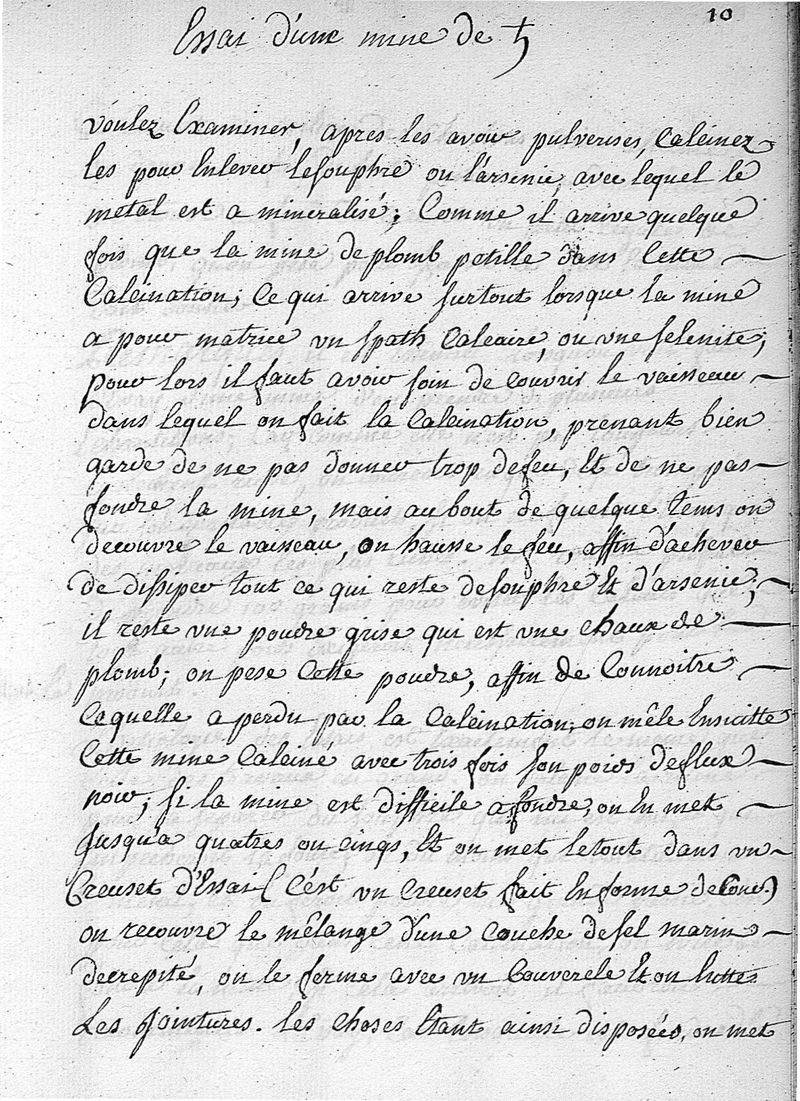 10
Essai d'une mine de ♄
voulez Examiner, apres les avoir pulverises, Calcinez
les pour Enlever lesouphre ou l'arsenic, avec lequel le
metal est a mineralisé; Comme il arrive quelque
fois que la mine de plomb petille dans Cette —
Calcination; Ce qui arrive surtout lorsque la mine
a pour matrice un spath Calcaire, ou vne selenite;
pour lors il faut avoir soin de couvrir le vaisseau —
dans lequel on fait la Calcination, prenant bien
garde de ne pas donner trop defeu, Et de ne pas —
fondre la mine, mais aubout de quelque tems on
decouvre le vaisseau, on hausse le feu, affin d'achever
de dissiper tout ce qui reste desouphre Et d'arsenic; —
il reste vne poudre grise qui est vne chaux de —
plomb; on pese Cette poudre, affin de Connoitre —
Cequelle a perdu par la Calcination; on mêle Ensuitte
Cette mine Calciné avec trois fois son poids deflux —
noir; si la mine est difficile afondre, on En met —
Jusqu'a quatres ou cinqs, Et on met letout dans vn —
Creuset d'Essai (C'est vn creuset fait En forme de Cone.)
on recouvre le mêlange d'une couche desel marin —
decrepité, on le ferme avec vn Couvercle Et on lutte
Les Jointures. les choses Etant ainsi disposées, on met